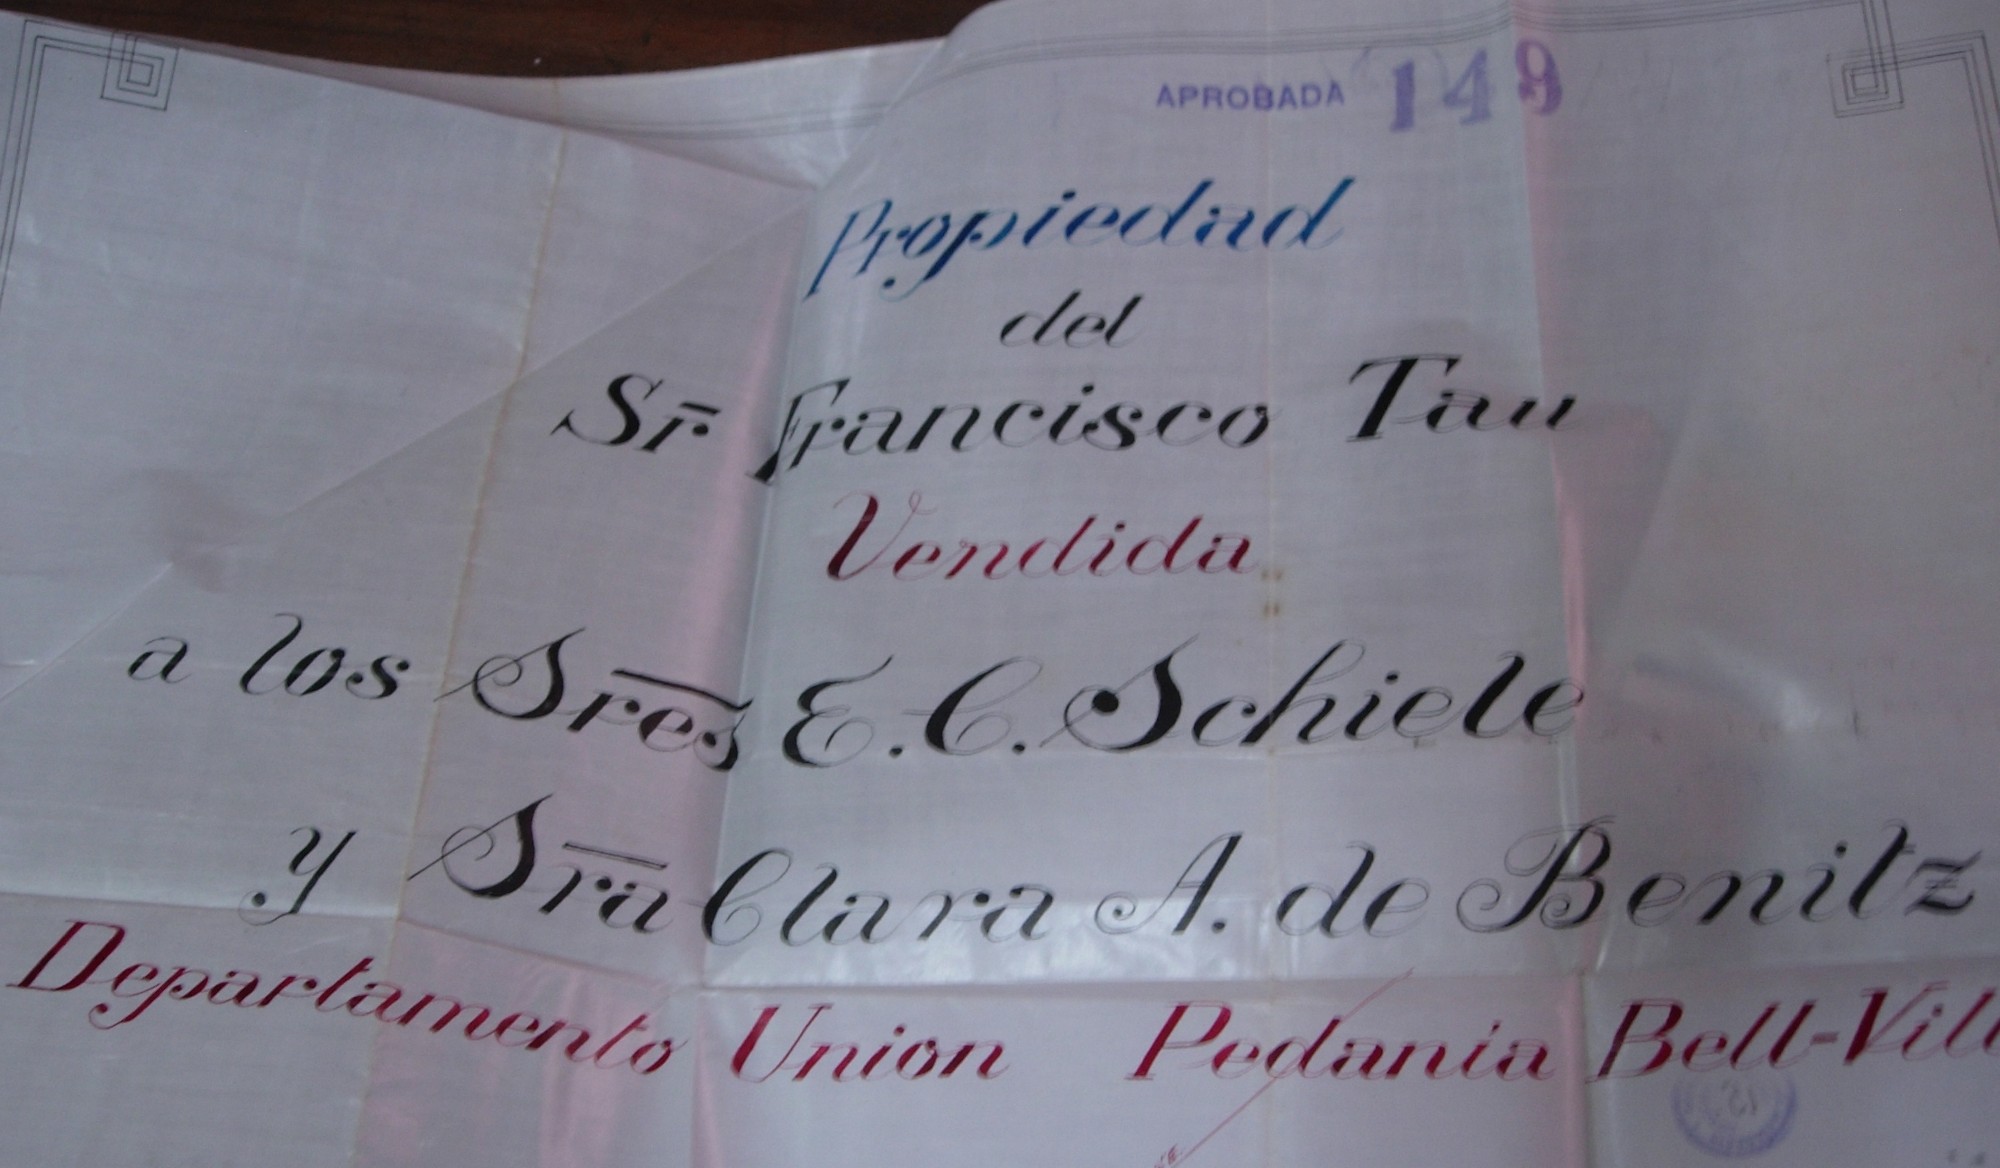 APROBADA 149
Propiedad
del
Sr. Francisco Tau
Vendida
a los Sres E. C. Schiele
y Sra Clara A. de Benitz
Departamento Union Pedania Bell-Vill